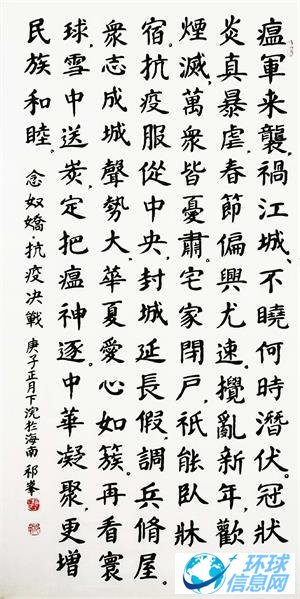 瘟軍来襲，禍江城、不曉何時潛伏。冠狀
炎真暴虐，春節偏興尤速，攪亂新年，歡
煙滅，萬衆皆憂肅。宅家閉戶，祇能臥牀
宿。抗疫服從中央，封城延長假，調兵脩屋。
衆志成城聲勢大，華夏愛心如簇。再看寰
球，雪中送炭，定把瘟神逐。中華凝聚，更增
民族和睦。
念奴嬌·抗疫决戰 庚子正月下浣於海南 祁峯
环球
信息网